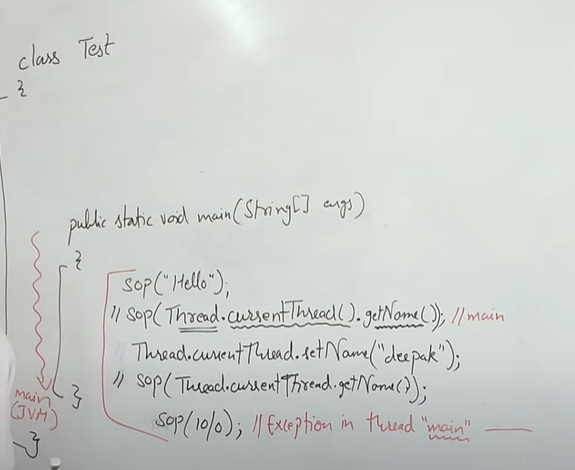 class Test
{
public static void main(String[] args)
{
SOP("Hello");
// SOP(Thread.currentThread().getName()); //main
Thread.currentThread.setName("deepak");
// SOP(Thread.currentThread.getName());
SOP(10/0); //Exception in thread "main"
}
main
(JVM)
}